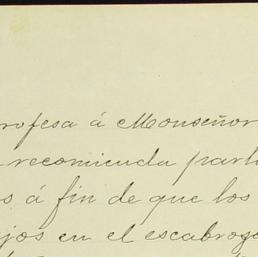 rofesa á Monseñor
recomienda part
s á fin de que los
jos en el escabros